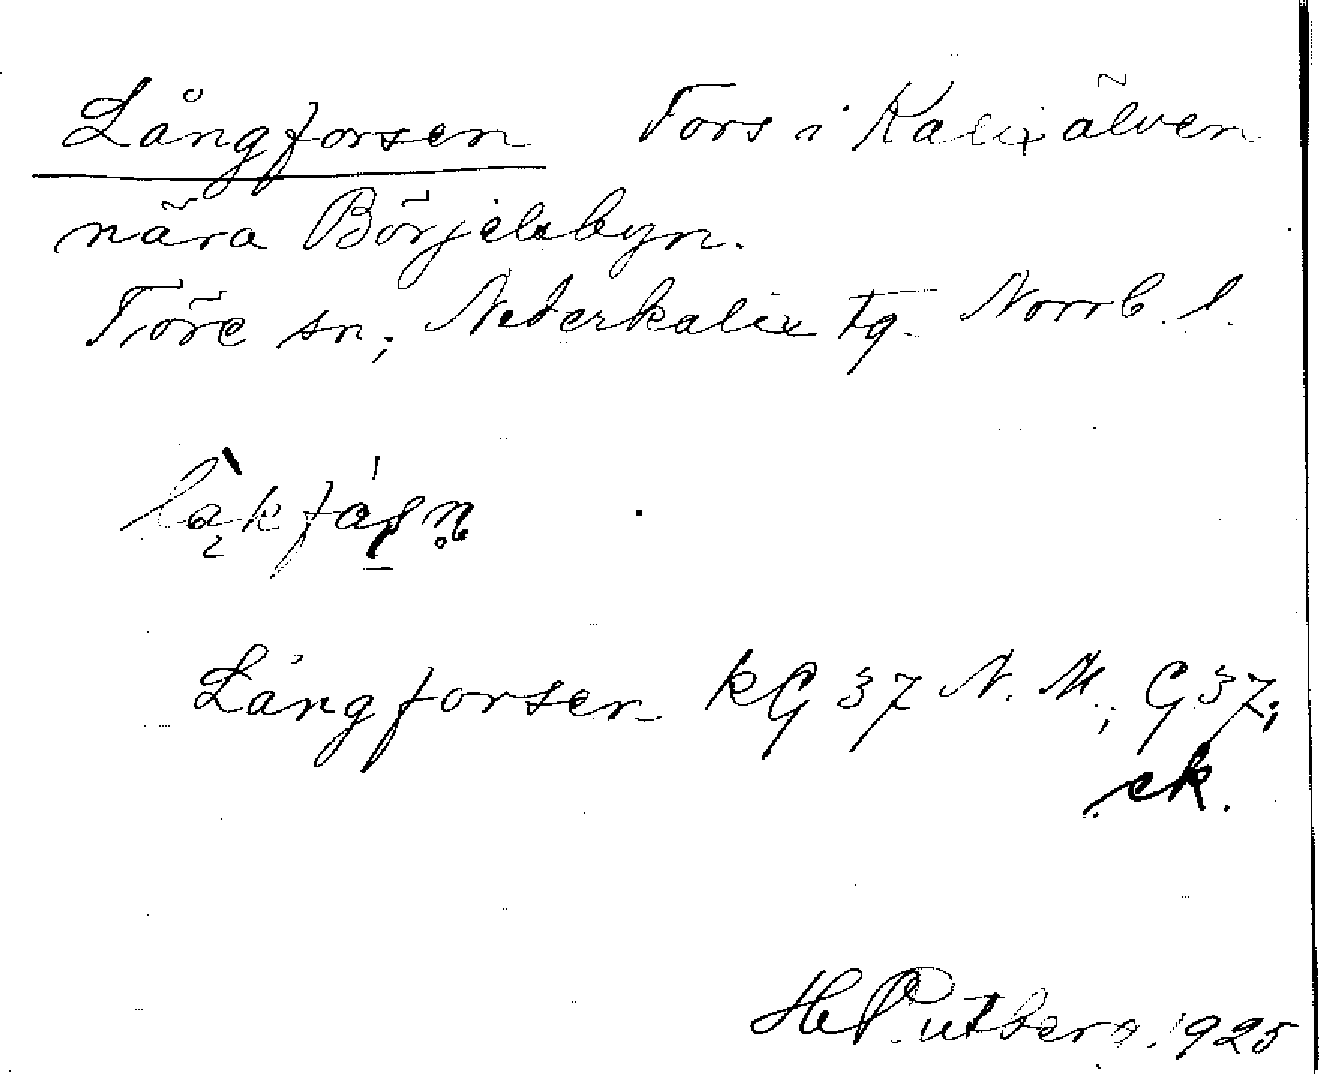 Långforsen Fors i Kalixälven
nära Börjelsbyn.
Töre sn, Nederkalix tg. Norrb. l.
Långforsen kG 37 N. M.; G 37;
ek.
H. Rutberg. 1925